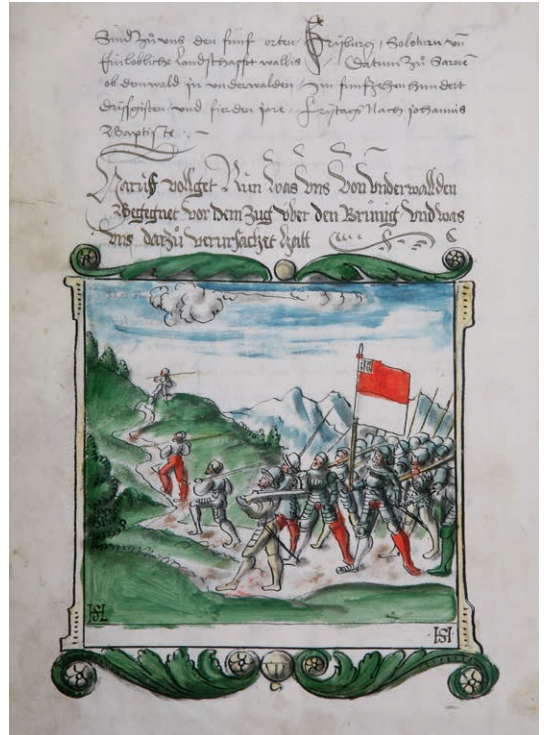 Sind zů uns den fünf orten Fryburg, Soloturn vn
Ein lobliche landtschafft wallis Datum zů Sarnen
ob dem wald in underwalden Im fünfzehenhundert
dryssgisten und fierden jore frytags Nach johannis
Baptiste :~
Haruf vollget Nun was vns Von vnderwallden
Begegnet vor dem Zug vber den Brünig Vnd was
vns darzů verursachet hatt
HSL
HSL